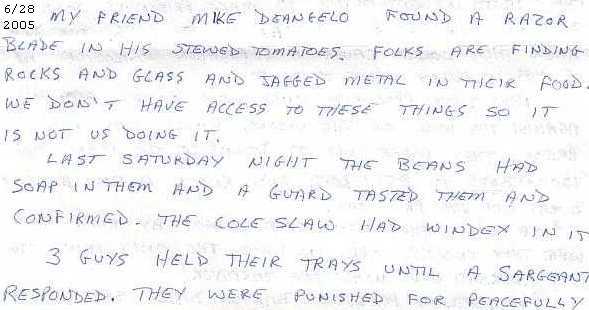 6/28
2005
MY FRIEND MIKE DEANGELO FOUND A RAZOR
BLADE IN HIS STEWED TOMATOES. FOLKS ARE FINDING
ROCKS AND GLASS AND JAGGED METAL IN THEIR FOOD.
WE DON'T HAVE ACCESS TO THESE THINGS SO IT
IS NOT US DOING IT.
LAST SATURDAY NIGHT THE BEANS HAD
SOAP IN THEM AND A GUARD TASTED THEM AND
CONFIRMED. THE COLE SLAW HAD WINDEX IN IT
3 GUYS HELD THEIR TRAYS UNTIL A SARGEANT
RESPONDED. THEY WERE PUNISHED FOR PEACEFULLY